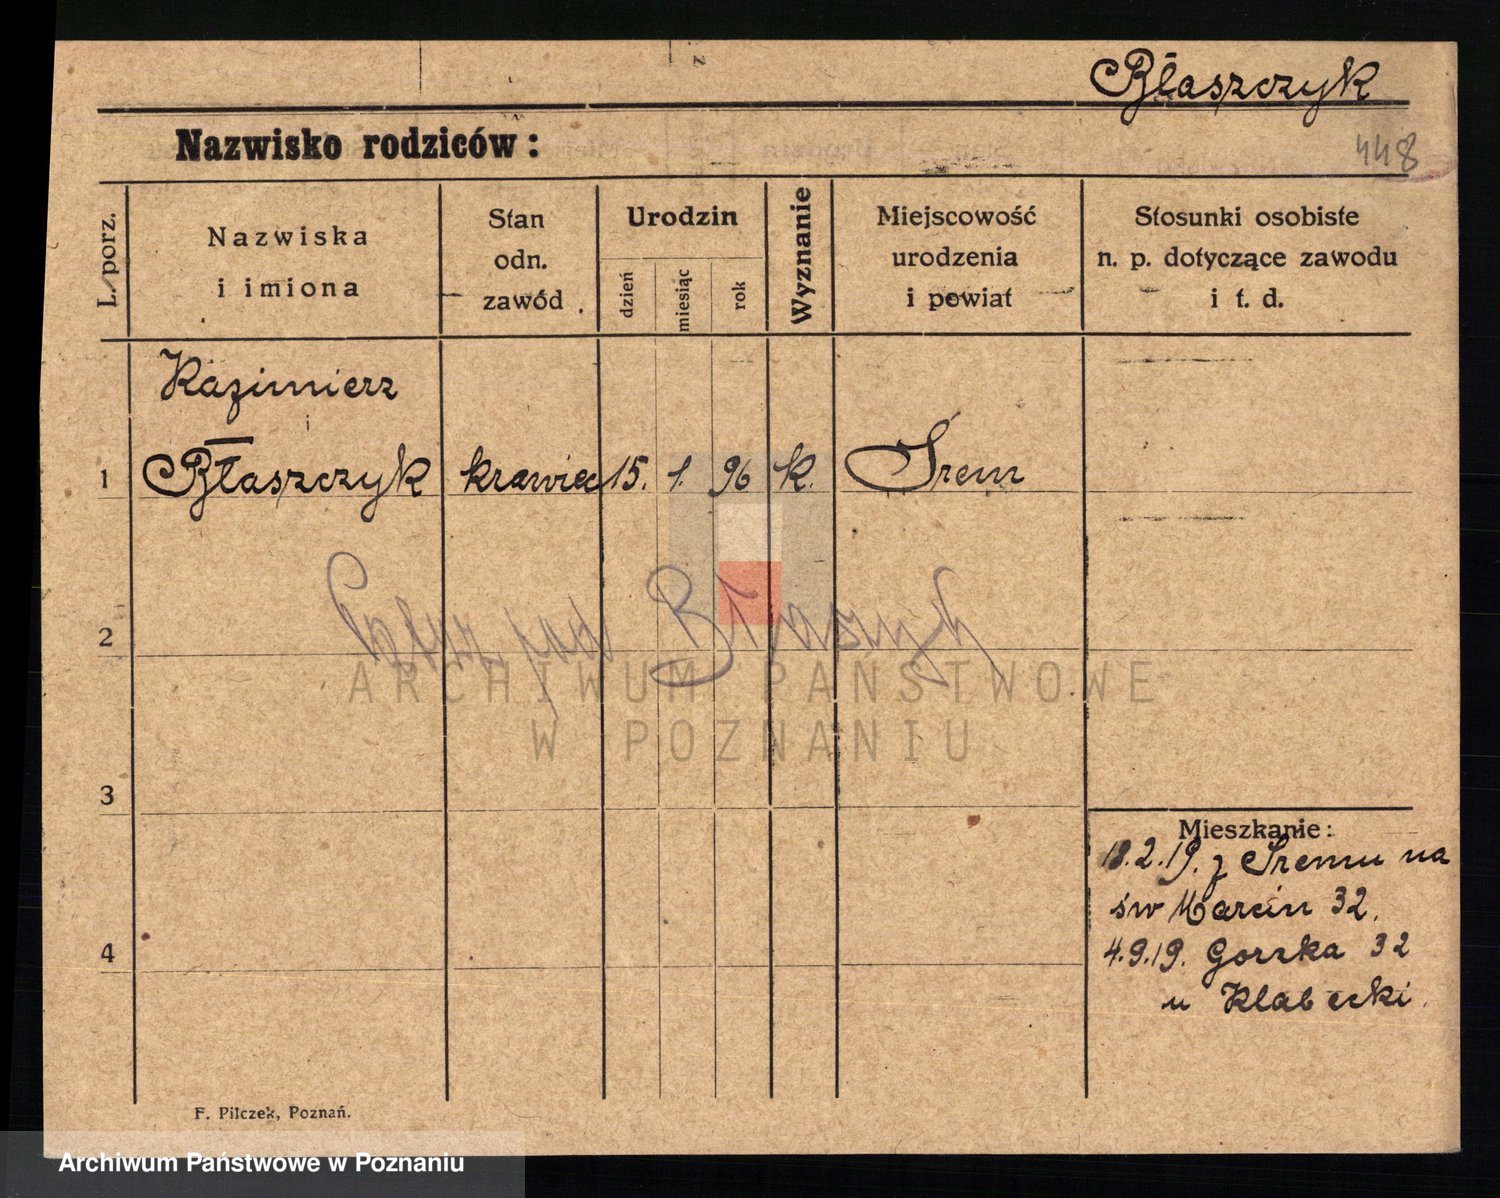 Błaszczyk
Nazwisko rodziców:
448
L. porz.
Nazwiska
i imiona
Stan
odn.
zawód
Urodzin
dzień
miesiąc
rok
Wyznanie
Miejscowość
urodzenia
i powiat
Stosunki osobiste
n. p. dotyczące zawodu
i t. d.
Kazimierz
1 Błaszczyk krawiec 15. 1. 96 k. Śrem
2
ARCHIWUM PAŃSTWOWE
W POZNANIU
3
Mieszkanie:
18.2.19. z Śremu na
św Marcin 32.
4
4.9.19. Gorzka 32
u Klabecki.
F. Pilczek, Poznań.
Archiwum Państwowe w Poznaniu